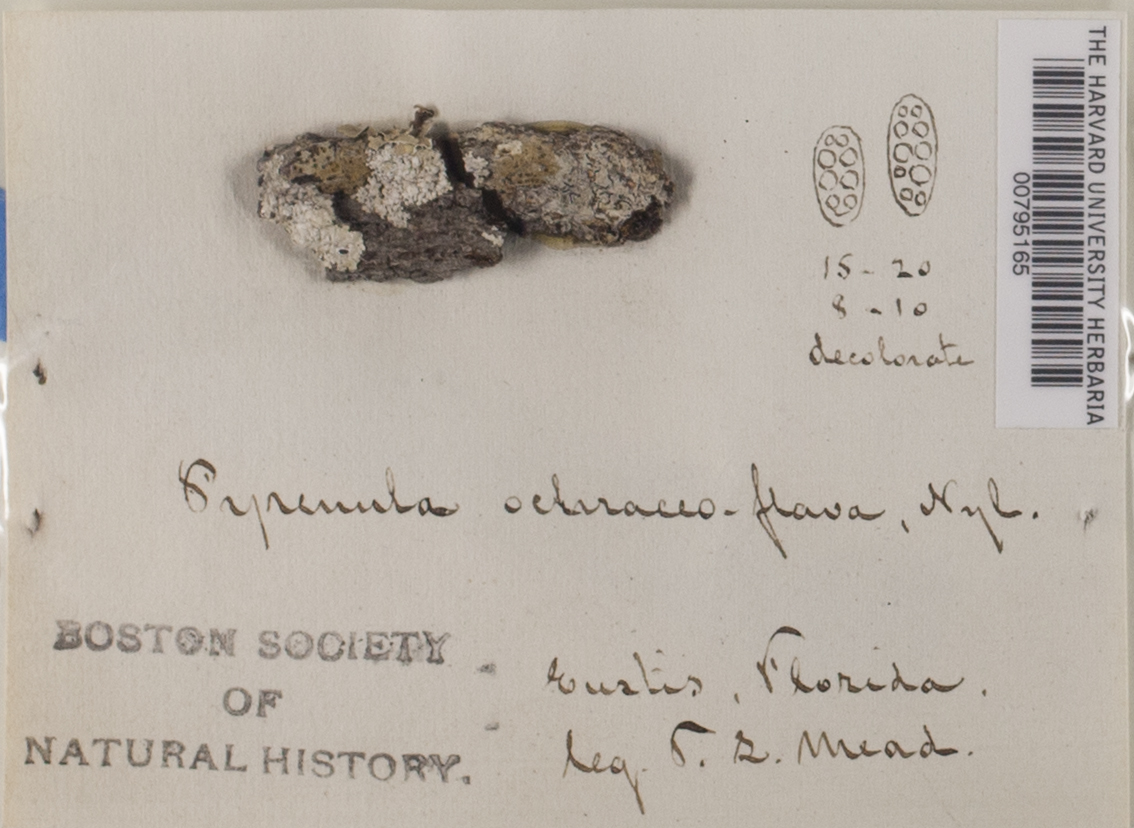 THE HARVARD UNIVERSITY HERBARIA
00795165
15 - 20
8 - 10
decolorate
Pyrenula ochraceo-flava, Nyl.
BOSTON SOCIETY
OF
NATURAL HISTORY.
Eustis, Florida.
leg. T. L. Mead.